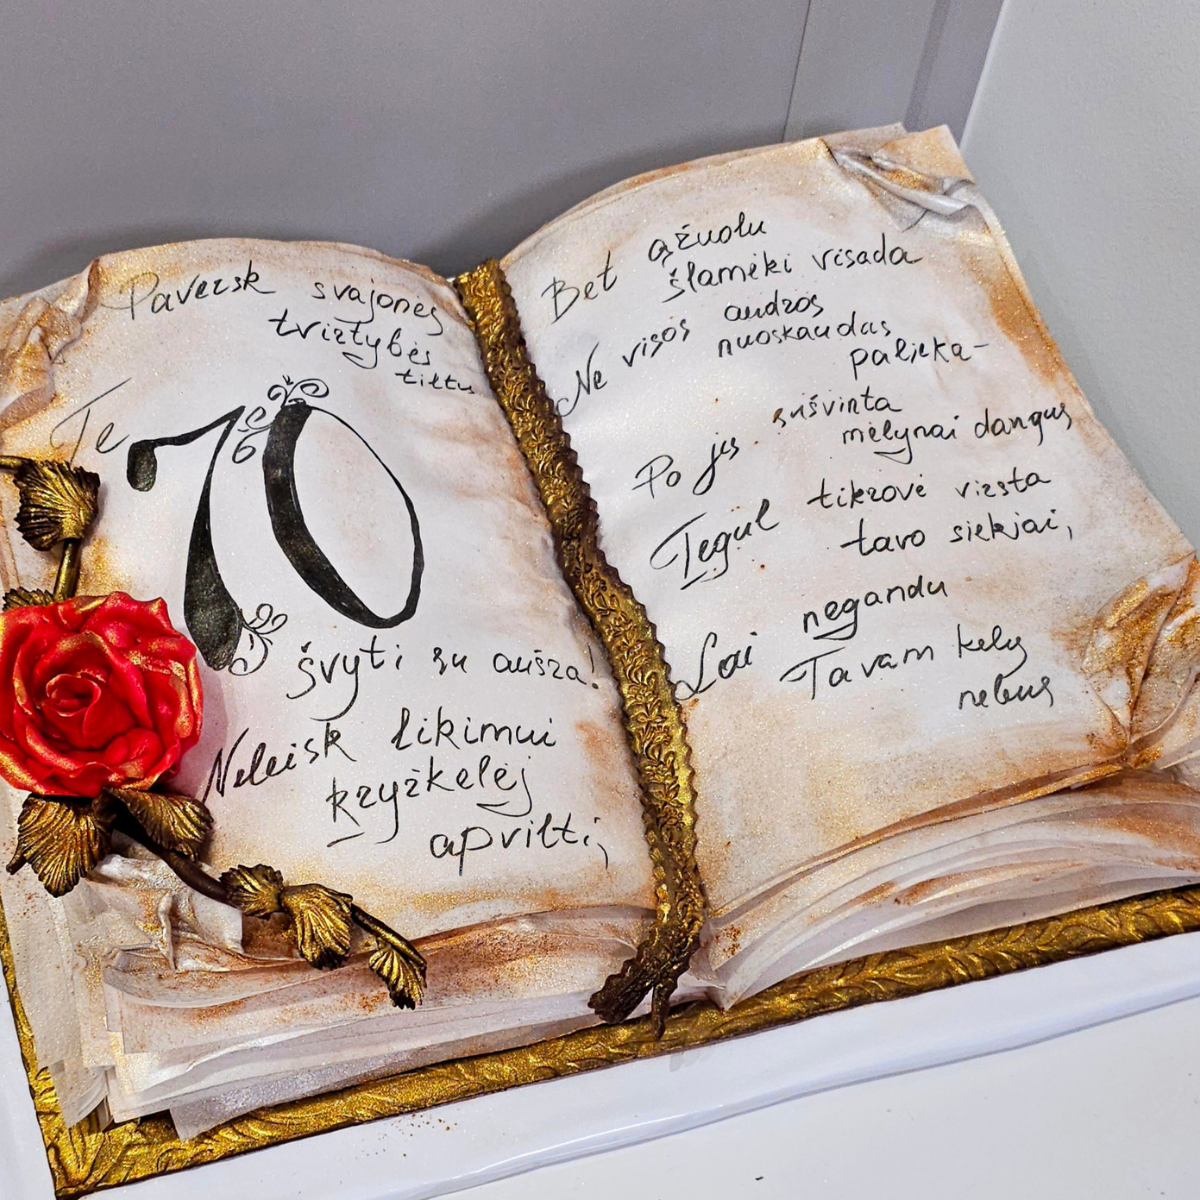 Paversk svajonės
tvirtybės
tiltu
Te 70
švyti su aušra!
Neleisk likimui
kryžkelėj
apvilti,
Bet ąžuolu
šlamėki visada
Ne visos audros
nuoskaudas
palieka-
Po jis sušvinta
mėlynai dangus
Tegul tikrovė virsta
tavo siekjai,
Lai negandu
Tavam kely
nebus